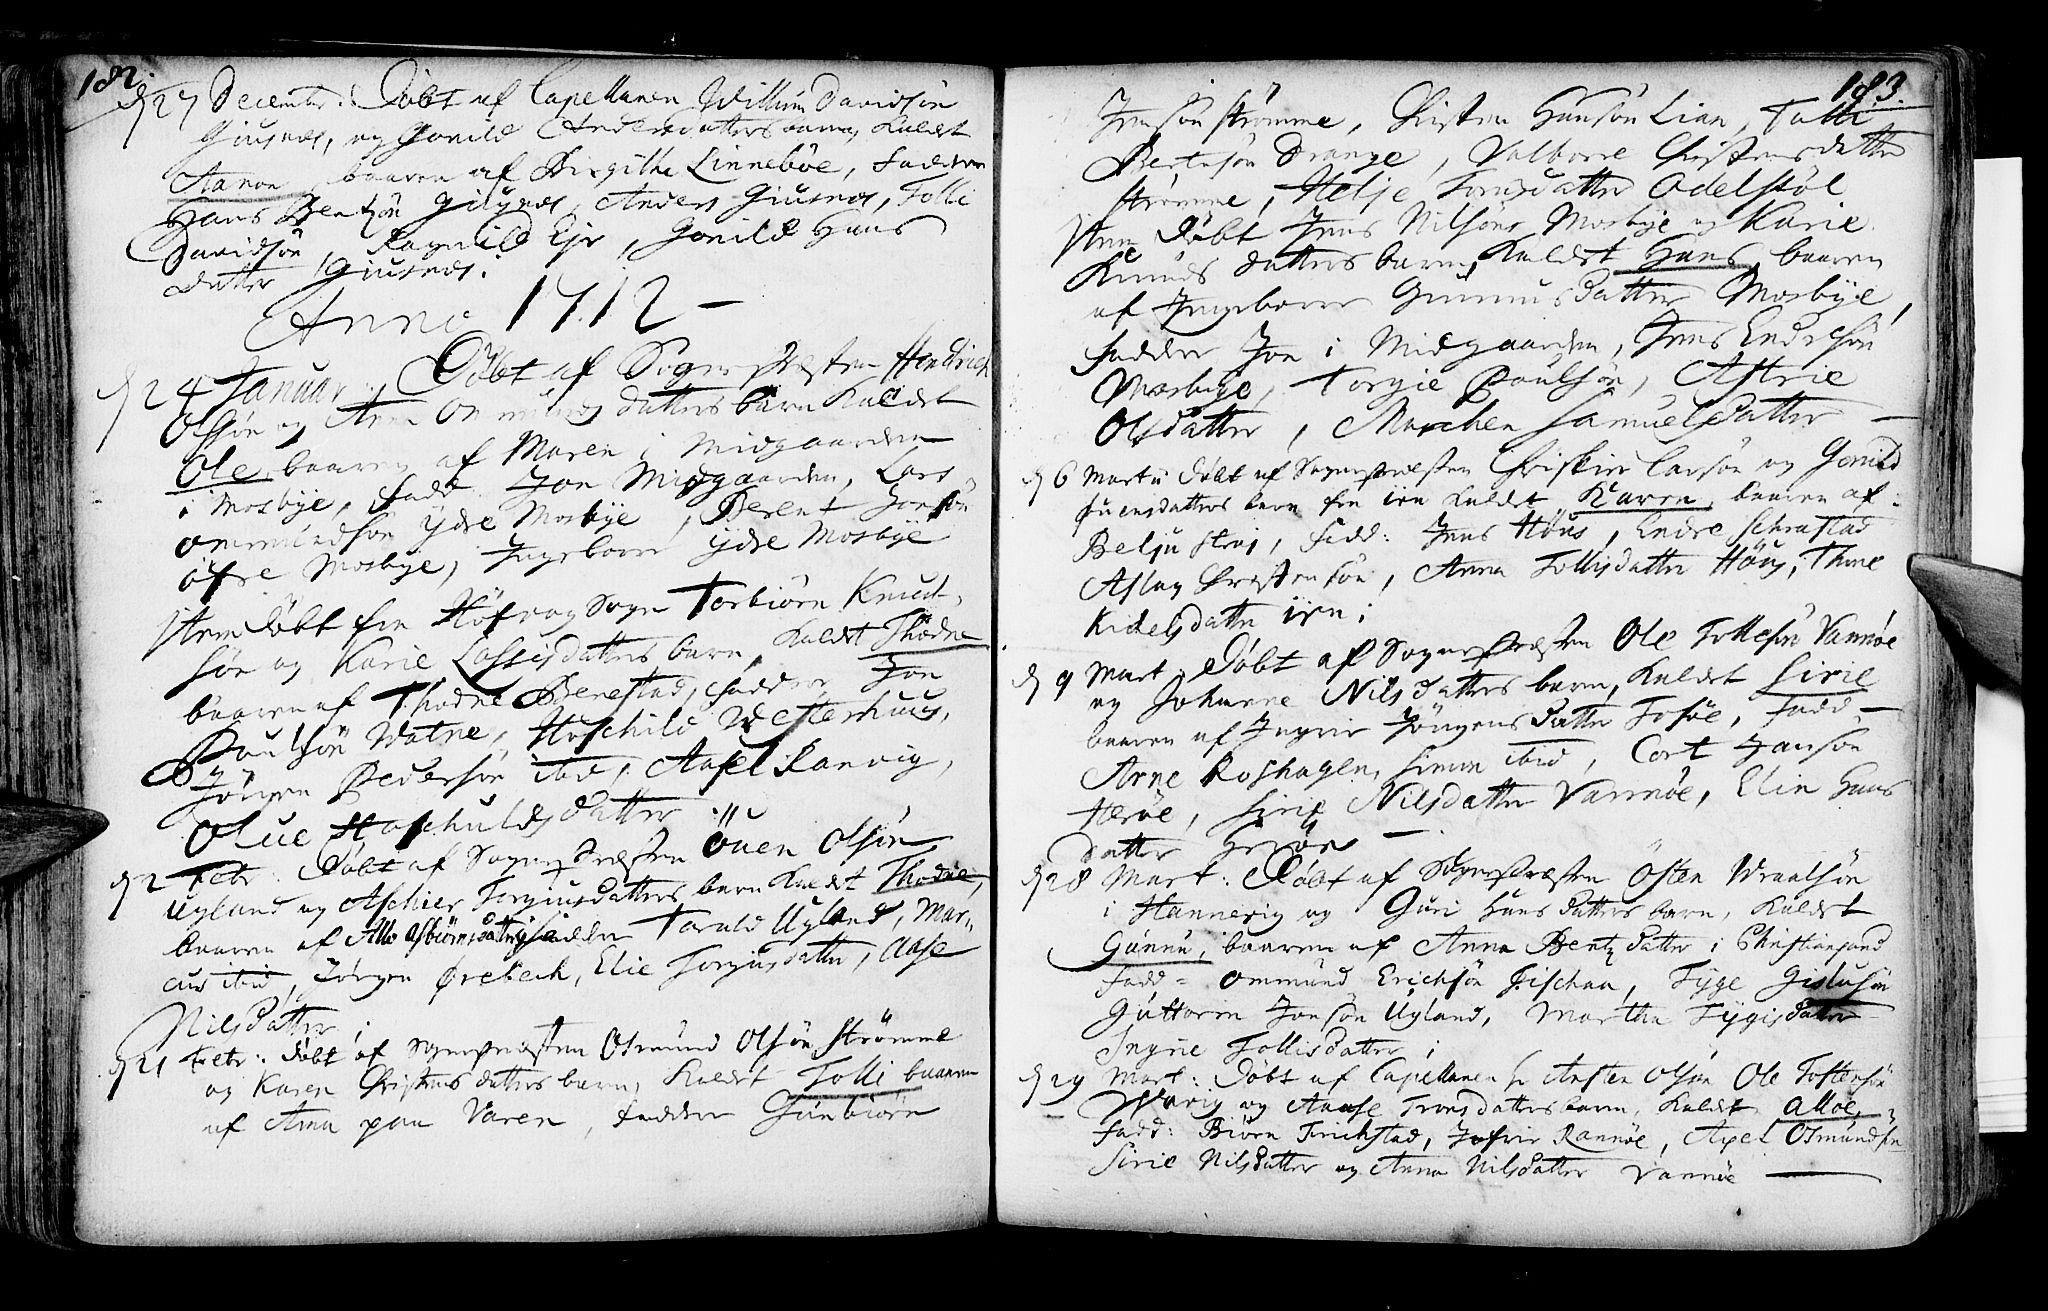 182.
d 27 December: Döbt af Capellanen Willum Davidsön
Giusnes, og Gonild Andersdatters barn, Kaldet
Aanon, baaren af Birgithe Linneböe, Fadder
Hans Bentzön Giusnes, Anders Giusnes, Tolli
Davidsön, Ragnild Eje, Gonild Hans
datter Giusnes.
Anno 1712 -
d 24 Januar. Döbt af Sognepræsten Hendrich
Olsön og Anna Ommunds datters barn Kaldet
Ole, baaren af Maren i Midgaarden
i Mosbye, Fadd. Jon Midgaarden, Lars
Ommundsön Ydre Mosbye, Berent Jonsön
öfre Mosbye, Ingeborre Ydre Mosbye
Item döbt fra Höfvog Sogn Torbiörn Knud
sön og Karie Lassesdatters barn, Kaldet Thodne
baaren af Thodne Benestad, Fadder Jon
Poulsön Watne, Hoschild Westerhuus,
Jörgen Pedersön ibid, Aasel Ranvig,
Olue Hoschulds datter.
d 2 Febr. Döbt af Sognepræsten Öuen Olsön
Ugland og Aschier Torgiusdatters barn Kaldet Thodne,
baaren af Allo Asbiörnsdatter, Fadder Torald Ugland, Mar-
cus ibid, Jörgen Örebech, Elie Torgiusdatter, Aase
Nilsdatter;
d 21 Febr: döbt af Sognepræsten Osmund Olsön Strömme
og Karen Christens datters barn, Kaldet Tolli baaren
af Anna paa Varen, Fadder Gunbiörn
183.
Jensön Strömme, Christen Hansön Lian, Tolli
Berntsön Drange, Valborre Christensdatter
Strömme, Helje Tomisdatter Odelstöl
Item Döbt Jens Nilsöns Mosbye og Karie
Knuds datters barn, Kaldet Hans, baaren
af Ingeborre Gunnusdatter Mosbye,
Fadder Jon i Midgaarden, Jens Endresön
Mosbye, Torgie Poulsön, Astrie
Olsdatter, Marchen Samuelsdatter -
d 6 Martii döbt af Sognepræsten Christen Larsön og Gonild
Suensdatters barn fra iren Kaldet Karen, baaren af
Belju Straj, Fadd: Jens Höus, Endre Schrastad
Aslag Christensön, Anna Tollisdatter Höus, Thore
Kichelsdatter iren;
d 9 Mart. Döbt af Sognepræsten Ole Tollesön Vannöe
og Johanne Nilsdatters barn, Kaldet Sirie
baaren af Ingrie Jörgens datter Fosöe, Fadd -
Arne Roshagen, Simon ibid, Cort Jansön
Heröe, Sirie Nilsdatter Vannöe, Elin Hans
datter Heröe -
d 28 Mart: Döbt af Sognepræsten Östen Wraalsön
i Hannevig og Guri Hansdatters barn, Kaldet
Gunnu, baaren af Anna Bentzdatter i Christiansand
Fadd = Ommund Erichsön Fischaa, Tyge Gislusön
Guttorm Jonsön Uyland, Martha Tygisdatter
Ingrie Tollisdatter;
d 29 Mart: Döbt af Capellanen hr Austen Olsön Ole Tostensön
Waaig og Aaase Tronsdatters barn, Kaldet Alloe,
Fadd: Biörn Frichstad, Jofrie Rannöe, Axel Osmundsön
Sirie Nilsdatter og Anna Nilsdatter Vannöe